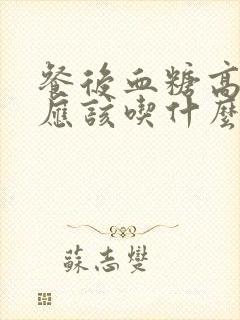 餐後血糖高
應該喫什麼
蘇志燮